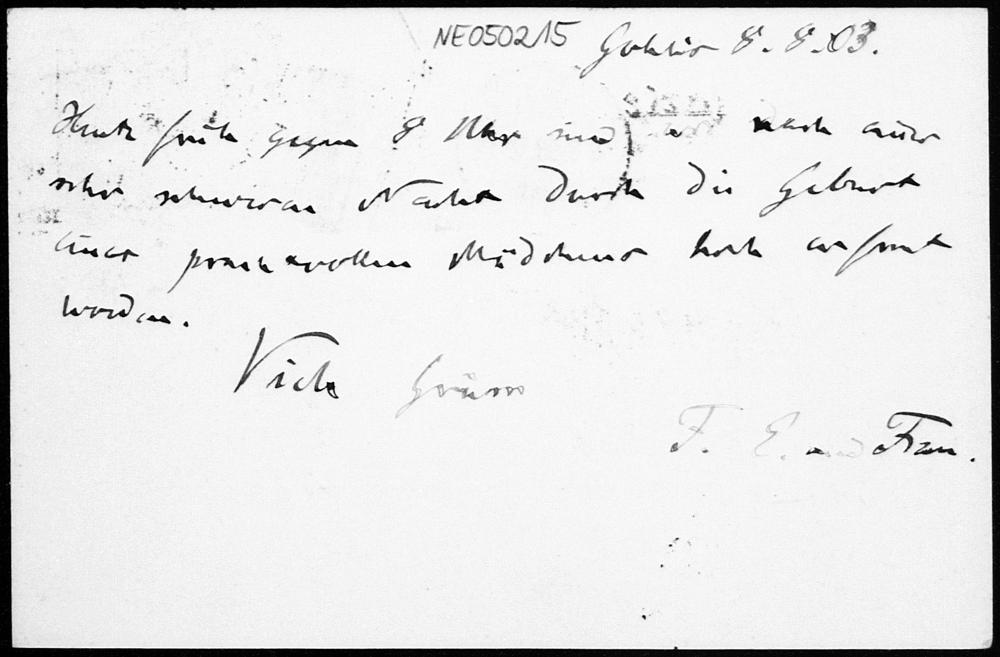 NE0502/15
Gohlis 8. 8. 03.
Heute früh gegen 8 Uhr sind wir nach einer
sehr schweren Nacht durch die Geburt
eines prachtvollen Mädchens hoch erfreut
worden.
Viele Grüsse
F. E. und Frau.